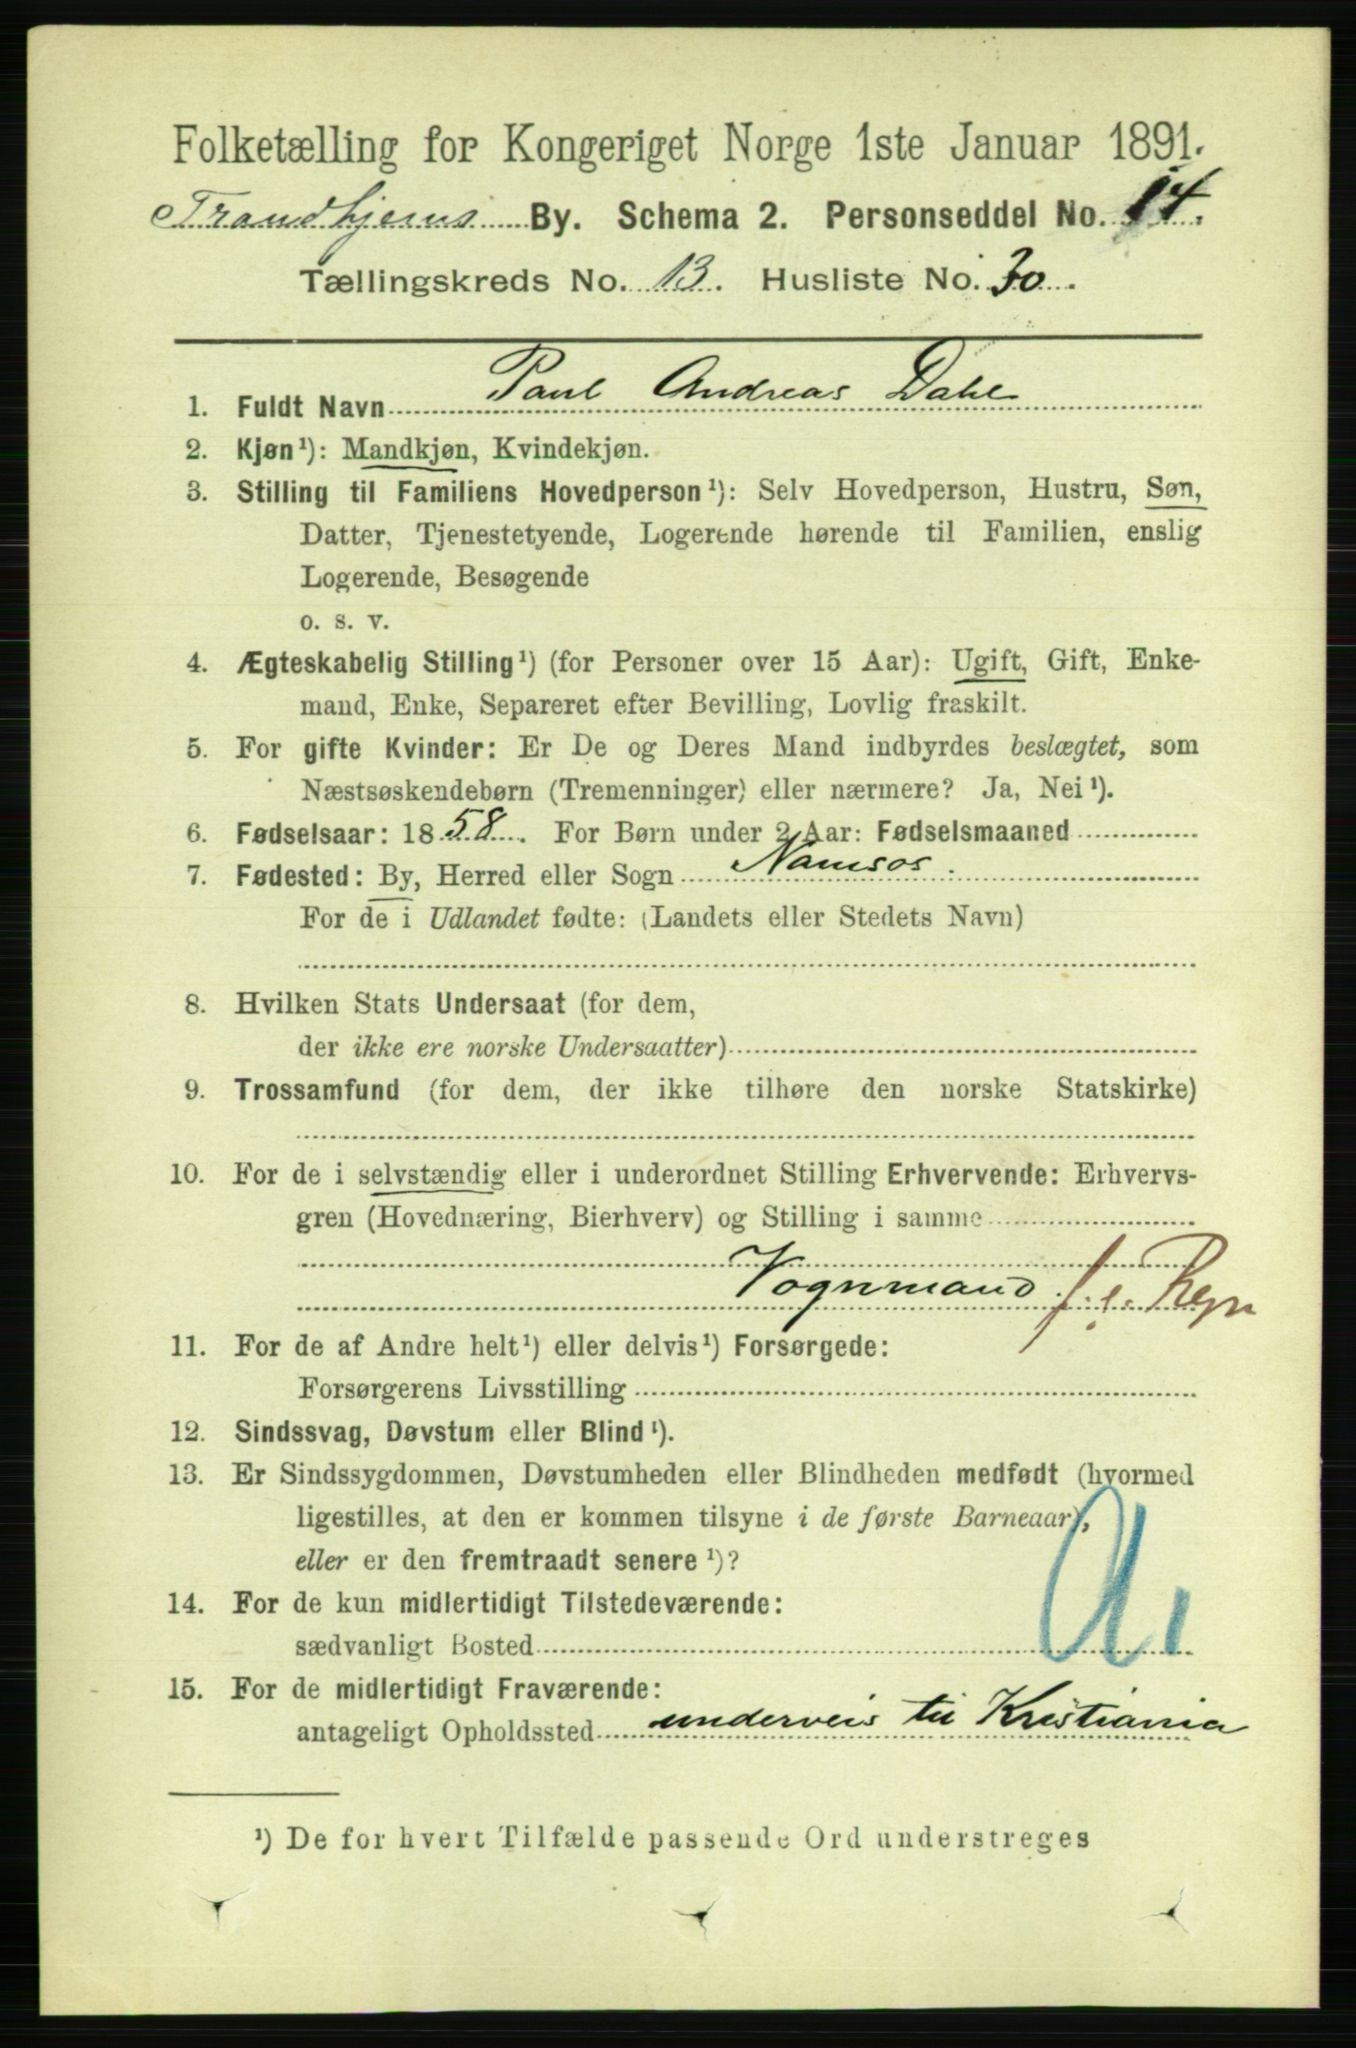 Folketælling for Kongeriget Norge 1ste Januar 1891.
Trondhjems By. Schema 2. Personseddel No. 14.
Tællingskreds No. 13. Husliste No. 30.
1. Fuldt Navn Paul Andreas Dahl
2. Kjøn¹): Mandkjøn, Kvindekjøn.
3. Stilling til Familiens Hovedperson¹): Selv Hovedperson, Hustru, Søn,
Datter, Tjenestetyende, Logerende hørende til Familien, enslig
Logerende, Besøgende
o. s. v.
4. Ægteskabelig Stilling¹) (for Personer over 15 Aar): Ugift, Gift, Enke-
mand, Enke, Separeret efter Bevilling, Lovlig fraskilt.
5. For gifte Kvinder: Er De og Deres Mand indbyrdes beslægtet, som
Næstsøskendebørn (Tremenninger) eller nærmere? Ja, Nei¹).
6. Fødselsaar: 1858. For Børn under 2 Aar: Fødselsmaaned
7. Fødested: By, Herred eller Sogn Namsos.
For de i Udlandet fødte: (Landets eller Stedets Navn)
8. Hvilken Stats Undersaat (for dem,
der ikke ere norske Undersaatter)
9. Trossamfund (for dem, der ikke tilhøre den norske Statskirke)
10. For de i selvstændig eller i underordnet Stilling Erhvervende: Erhvervs-
gren (Hovednæring, Bierhverv) og Stilling i samme
Vognmand f. e. Regn
11. For de af Andre helt¹) eller delvis¹) Forsørgede:
Forsørgerens Livsstilling
12. Sindssvag, Døvstum eller Blind¹).
13. Er Sindssygdommen, Døvstumheden eller Blindheden medfødt (hvormed
ligestilles, at den er kommen tilsyne i de første Barneaar),
eller er den fremtraadt senere¹)?
14. For de kun midlertidigt Tilstedeværende:
sædvanligt Bosted
15. For de midlertidigt Fraværende:
antageligt Opholdssted underveis til Kristiania
¹) De for hvert Tilfælde passende Ord understreges